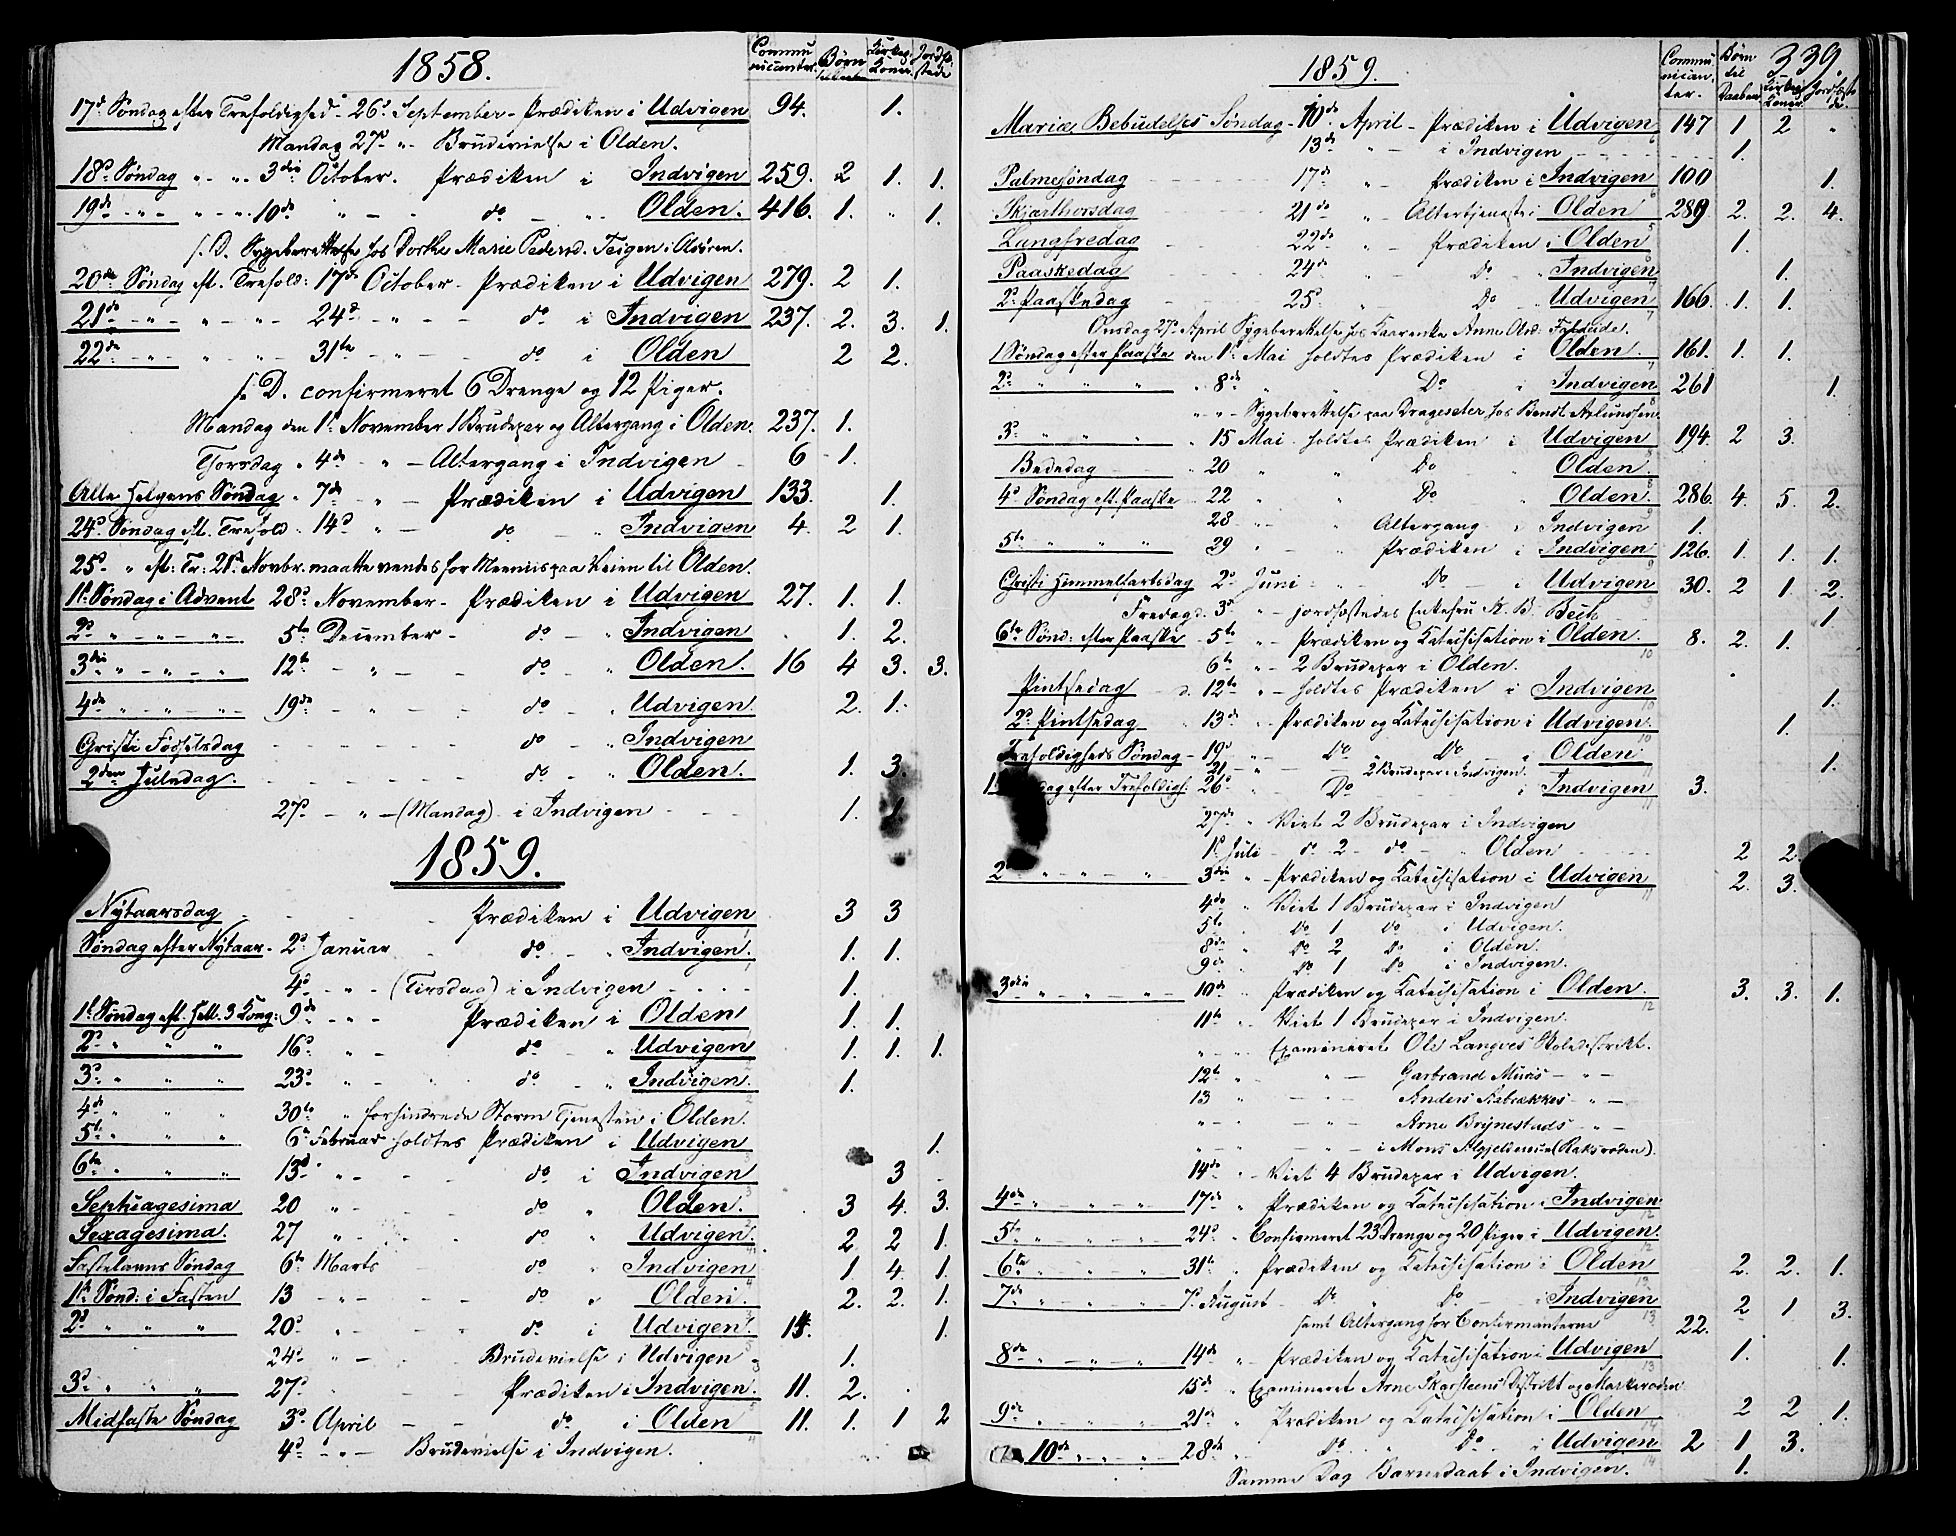 1858.
Communicanter. Børn Kirkeg. Koner. Jordfæstede
17d Søndag efter Trefoldighed - 26d September - Prædiken i Udvigen 94. 1.
Mandag 27d " Brudevielse i Olden.
18d Søndag " " 3die October. Prædiken i Indvigen 259. 2 1. 1.
19de " " 10de " do " Olden. 416. 1. " 1.
s. D. Sygeberettelse hos Dorthe Marie Pedersd. Teigen i
20de Søndag eft. Trefold: 17de October - Prædiken i Udvigen 279. 2 1.
21de " " " 24d " do i Indvigen 237. 2. 3. 1.
22de " " " 31te " do i Olden 2 2.
s. D. confirmeret 6 Drenge og 12 Piger.
Mandag den 1ste November 1 Brudepar og Altergang i Olden. 237. 1.
Torsdag " 4de " - Altergang i Indvigen 6 1.
Alle Helgens Søndag " 7de " Prædiken i Udvigen 133. 1.
24d Søndag eft. Trefold. 14d " do " Indvigen 4. 2 1.
25d " eft: Tr: 21d Novbr. maatte vendes for Meeniis paa Veien til Olden.
1ste Søndag i Advent 28d November - Prædiken i Udvigen 27. 1. 1.
2d " " 5te December - do " Indvigen 1. 2.
3die " " 12te " do " Olden. 16 4 3. 3.
4de " " 19de " do " Udvigen 2. 1.
Christi Fødselsdag do " Indvigen
2den Juledag. do " Olden. 1. 3.
27d " (Mandag) i Indvigen 1. 1.
1859.
Nytaarsdag Prædiken i Udvigen 3 3
Søndag efter Nytaar - 2d Januar do " Indvigen 1. 1.
4d " (Tirsdag) i Indvigen 1.
1ste Søndag eft. Hell. 3 Kong: 9de " Prædiken i Olden 1. 1.
2d " " " 16d " do " Udvigen 1. 1. 1.
3d " " " 23d " do " Indvigen. 1.
4de " " " 30te " forhindrede Storm Tjenesten i Olden.
5te " " " 6te Februar holdtes Prædiken i Udvigen 1.
6te " " " 13d " do i Indvigen 3
Septuagesima 20 " do " Olden. 3 4. 3.
Sexagesima. 27 " do " Udvigen. 2 2 1.
Fastelavns Søndag 6te Marts do " Indvigen 1 4. 1.
1ste Sønd: i Fasten 13 " do " Olden. 2. 2. 1.
2d " " " 20d " do i Udvigen 1.
24d " Brudevielse i Udvigen 1.
3d " " " 27d Prædiken i Indvigen. 11. 2.
Midfaste Søndag 3d April do i Olden 11. 1. 1 2
4d " Brudevielse i Indvigen.
1859.
339.
Communicanter. Børn til Daaben Kirkeg. Koner. Jordfæstede
Mariæ Bebudelses Søndag - 10de April - Prædiken i Udvigen 147 1 2 "
13de " i Indvigen 1.
Palmesøndag 17de " Prædiken i Indvigen 100 1.
Skjærthorsdag 21de " Altertjeneste i Olden 289 2. 2. 4.
Langfredag 22de " Prædiken i Olden 1.
Paaskedag 24de Do " Indvigen 1.
2d Paaskedag 25d " Do " Udvigen 166. 1. 1.
Onsdag 27d April Sygeberettelse hos Anne
1 Søndag efter Paaske den 1ste Mai holdtes Prædiken i Olden. 161. 1. 1.
2d " " " " 8de " Do i Indvigen 261 1.
" " Sygeberettelse paa Drageseter hos Bendt
3d " " " " 15 Mai holdtes Prædiken i Udvigen 194 2 3.
Bededag " 20 " Do " Olden.
4d Søndag eft. Paaske 22 " Do " Olden. 286. 4. 5. 2.
28 " Altergang i Indvigen 1
5te " " " 29 " Prædiken i Indvigen 126. 1. 1. 1.
Christi Himmelfartsdag 2d Juni Do i Udvigen 30. 2 1 2.
Fredag d. 3d " jordfæstedes Enkefru K. B. Bech 1
6te Sønd: efter Paaske 5te " Prædiken og Katechisation i Olden. 8. 2. 1.
6te " 2 Brudepar i Olden.
Pintsedag d. 12te " holdtes Prædiken i Indvigen 1.
2d Pintsedag " 13de " Prædiken og Katechisation i Udvigen 1.
Trefoldigheds Søndag - 19d " Do " Do " Olden.
21 " 2 Brudepar i Indvigen. 1.
efter Trefoldigh: 26d " Do i Indvigen 3.
27de " Viet 2 Brudepar i Indvigen
1ste Juli - do 2 - do " Olden 2 2
2 " " " 3die " Prædiken og Katechisation i Udvigen 2. 3.
4de " Viet 1 Brudepar i Indvigen
5te " Do 1 Do i Udvigen.
8de " Do 2 Do i Olden.
9de " do 1 Do i Indvigen.
3die " " " 10de " Prædiken og Katechisation i Olden. 3. 3. 1.
11te " Viet 1 Brudepar i Indvigen.
" " Examineret Ole Langves Skoledistrikt.
12te " " Garbrand Muris " "
13 " " Anders Aabrækkes " "
" " " Arne Brynestads " "
" " " i Mons (Raksroden).
14de " Viet 4 Brudepar i Udvigen.
4de " " " 17de " Prædiken og Katechisation i Indvigen
5te " " " 24d " Confirmeret 23 Drenge og 20 Piger i Udvigen.
6te " " " 31te " Prædiken og Katechisation i Olden 2. 2. 1.
7de " " " 7d August - Do " Do i Indvigen 2 1 3.
samt Altergang for Confirmanterne 22.
8de " " " 14de " Prædiken og Katechisation i Udvigen 1. 1.
15de " Examineret Arne Skarsteens Distrikt og
9de " " " 21de " Prædiken og Katechisation i Olden 2 2 1.
10de " " " 28de " Do " Do i Udvigen 2 1 3.
Samme Dag Barnedaab i Indvigen. 1.